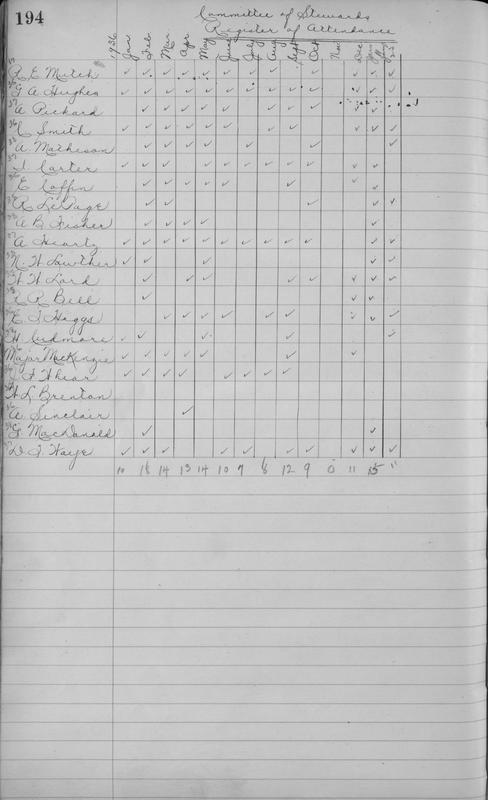 194
Committee of Stewards
Register of Attendance
1936 Jan Feb Mar Apr May June July Aug Sept Oct Nov Dec Jan
R E Mutch ✓ ✓ ✓ ✓ ✓ ✓ ✓ ✓ ✓ ✓ ✓ ✓
G A Hughes ✓ ✓ ✓ ✓ ✓ ✓ ✓ ✓ ✓ ✓ ✓ ✓ ✓
A Pickard ✓ ✓ ✓ ✓ ✓ ✓ ✓ ✓ ✓ ✓
L Smith ✓ ✓ ✓ ✓ ✓ ✓ ✓ ✓ ✓ ✓ ✓
A. Matheson ✓ ✓ ✓ ✓ ✓ ✓ ✓
J. Carter ✓ ✓ ✓ ✓ ✓ ✓ ✓ ✓ ✓ ✓ ✓
E Coffin ✓ ✓ ✓ ✓ ✓ ✓ ✓ ✓
R LePage ✓ ✓ ✓ ✓ ✓
A B Fisher ✓ ✓ ✓ ✓ ✓
A Heartz ✓ ✓ ✓ ✓ ✓ ✓ ✓ ✓ ✓ ✓ ✓ ✓
N. H Lawther ✓ ✓ ✓ ✓ ✓
H H Lord ✓ ✓ ✓ ✓ ✓ ✓ ✓ ✓
R Bell ✓ ✓ ✓
E J Higgs ✓ ✓ ✓ ✓ ✓ ✓ ✓ ✓ ✓
H Cudmore ✓ ✓ ✓ ✓ ✓
Major MacKenzie ✓ ✓ ✓ ✓ ✓ ✓ ✓
F Whear ✓ ✓ ✓ ✓ ✓ ✓ ✓ ✓
H L Brenton
A. Sinclair ✓
G. MacDonald ✓ ✓
D. J. Kaye ✓ ✓ ✓ ✓ ✓ ✓ ✓ ✓ ✓ ✓
10 18 14 13 14 10 7 8 12 9 0 11 15 11